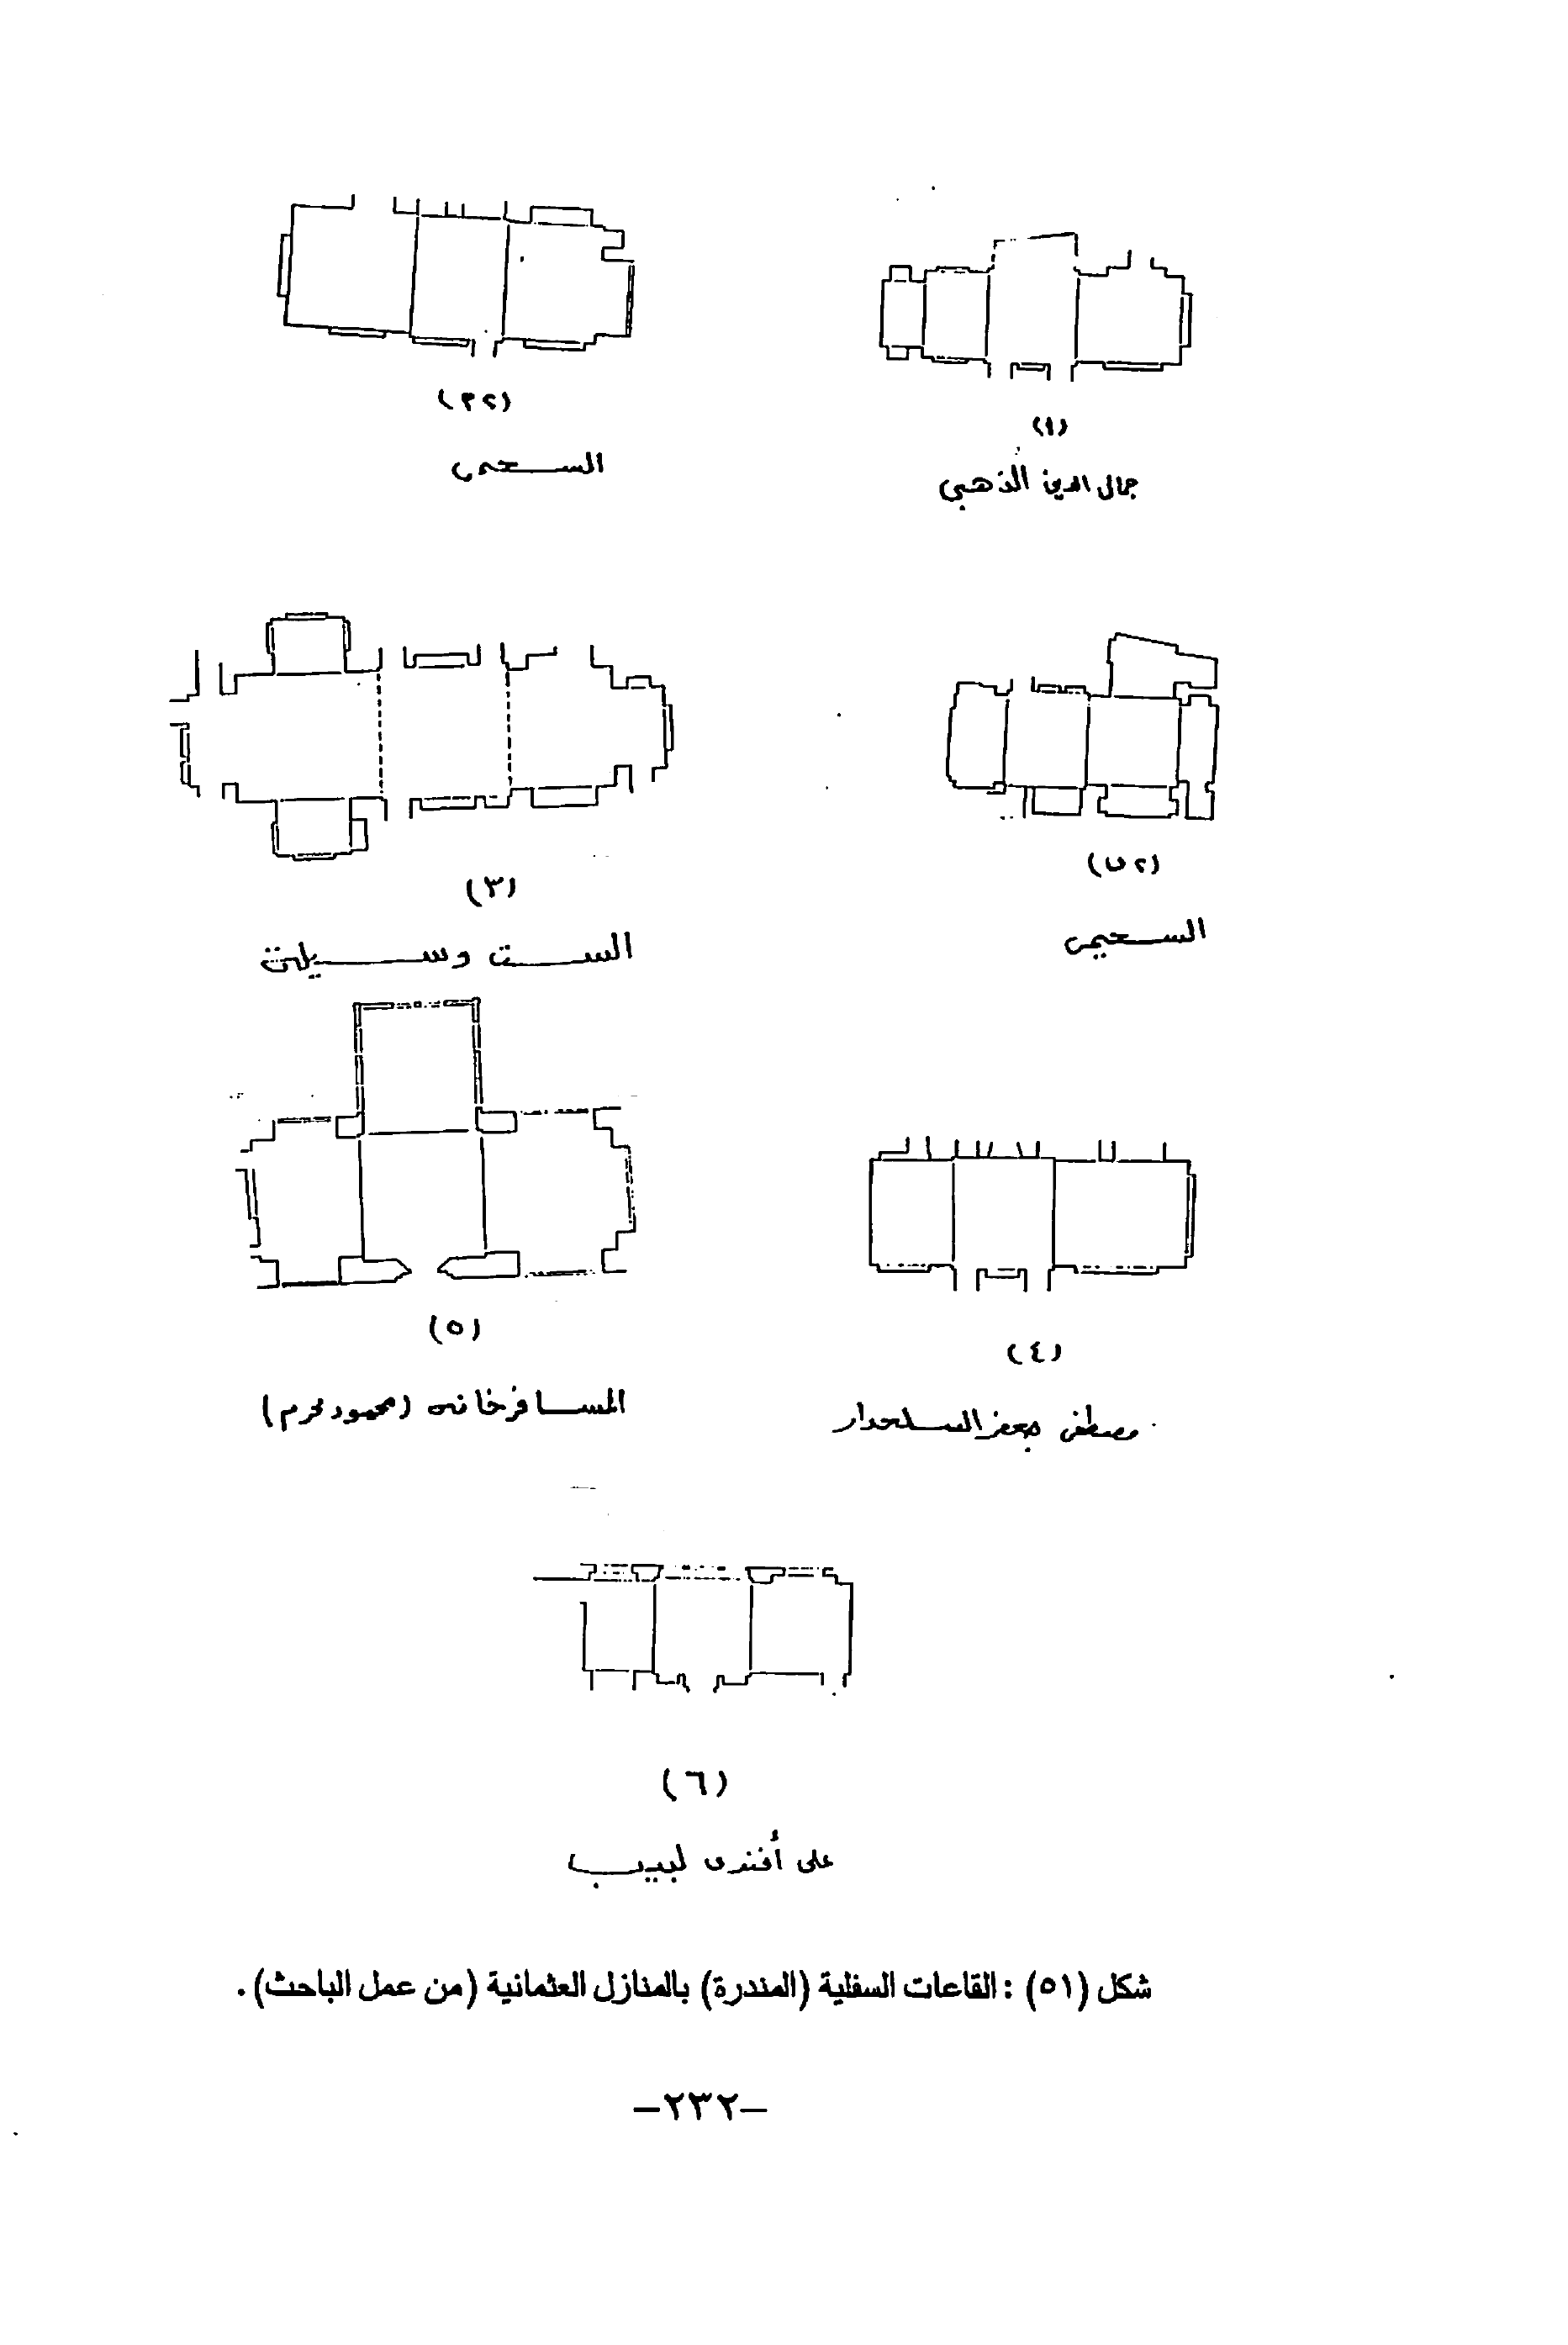 (١)
جمال الدين الذهبي
(٢م)
السحيمى
(٢ب)
السحيمى
(٣)
الست وسيلة
(٤)
مصطفى جعفر السلحدار
(٥)
المسافرخانه (محمود محرم)
(٦)
على أفندى لبيب
شكل (٥١) : القاعات السفلية (المندرة) بالمنازل العثمانية (من عمل الباحث).
-٢٣٢-